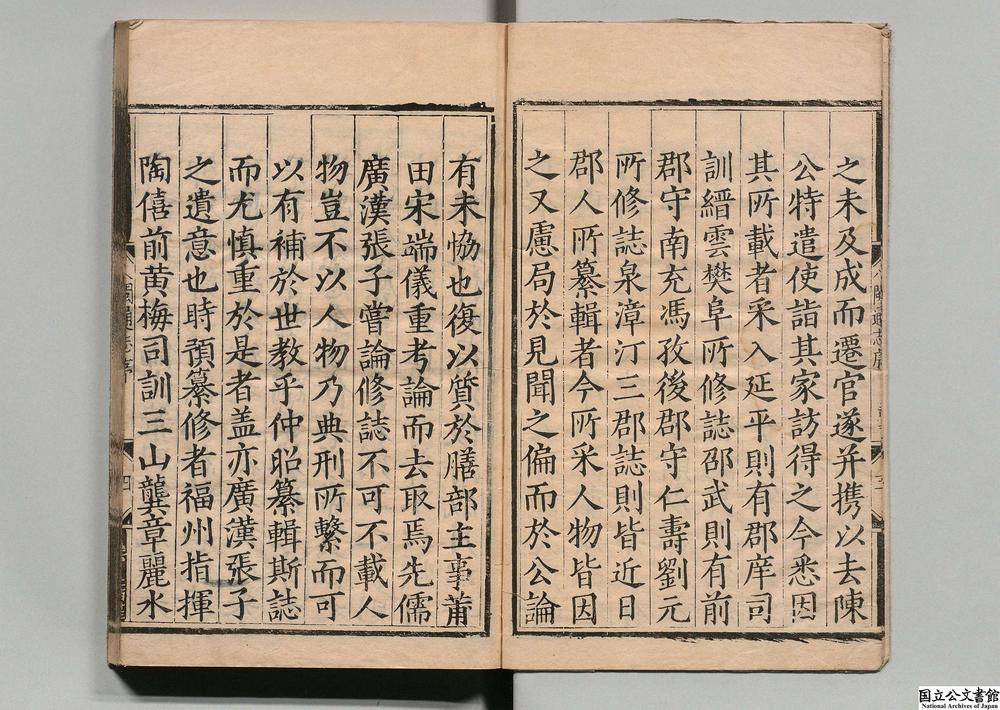 之未及成而遷官遂并携以去陳
公特遣使詣其家訪得之今悉因
其所載者采入延平則有郡庠司
訓縉雲樊阜所修誌邵武則有前
郡守南充馮孜後郡守仁壽劉元
所修誌泉漳汀三郡誌則皆近日
郡人所纂輯者今所采人物皆因
之又慮局於見聞之偏而於公論
有未恊也復以質於膳部主事莆
田宋端儀重考論而去取焉先儒
廣漢張子嘗論修誌不可不載人
物豈不以人物乃典刑所繫而可
以有補於世教乎仲昭纂輯斯誌
而尤慎重於是者盖亦廣漢張子
之遺意也時預纂修者福州指揮
陶僖前黄梅司訓三山龔章麗水
八閩通志序
四
国立公文書館
National Archives of Japan